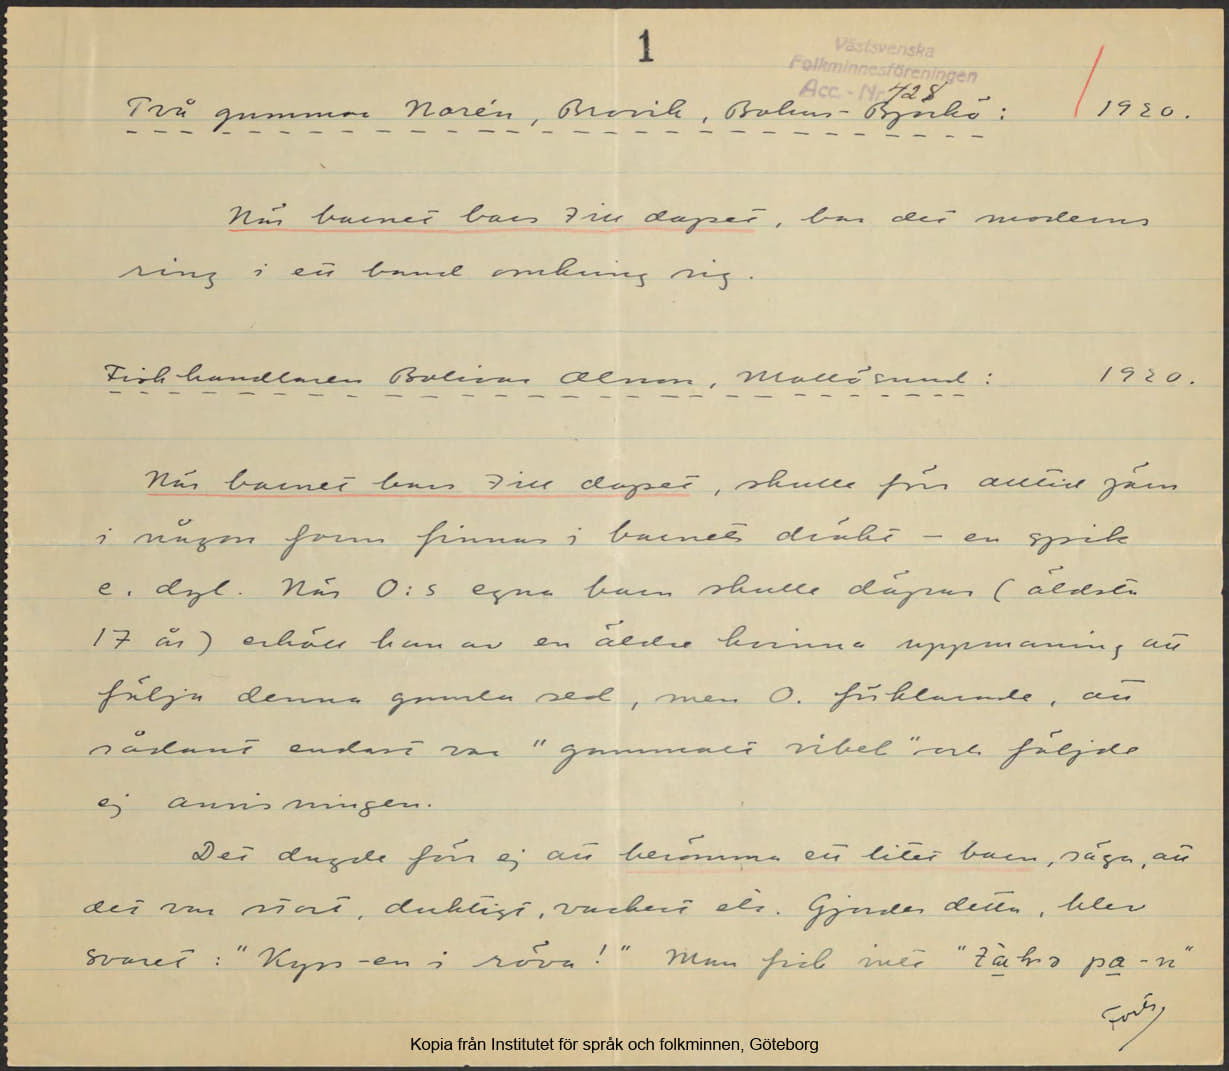 1
Västsvenska
Folkminnesföreningen
Acc.-Nr 728
Två gummor Norén, Brovik, Bohus-Björkö: 1920.
När barnet bars till dopet, bar det moderns
ring i ett band omkring sig.
Fiskhandlaren Bolivar Olsson, Mollösund: 1920.
När barnet bars till dopet, skulle förr alltid järn
i någon form finnas i barnets dräkt – en spik
e. dyl. När O:s egna barn skulle döpas (äldsta
17 år) erhöll han av en äldre kvinna uppmaning att
följa denna gamla sed, men O. förklarade, att
sådant endast var "gammalt vibel" och följde
ej anvisningen.
Det dugde förr ej att berömma ett litet barn, säga, att
det var stort, duktigt, vackert etc. Gjordes detta, blev
svaret: "Kyss-en i röva!" Man fick inte "
pa-n"
Forts,
Kopia från Institutet för språk och folkminnen, Göteborg